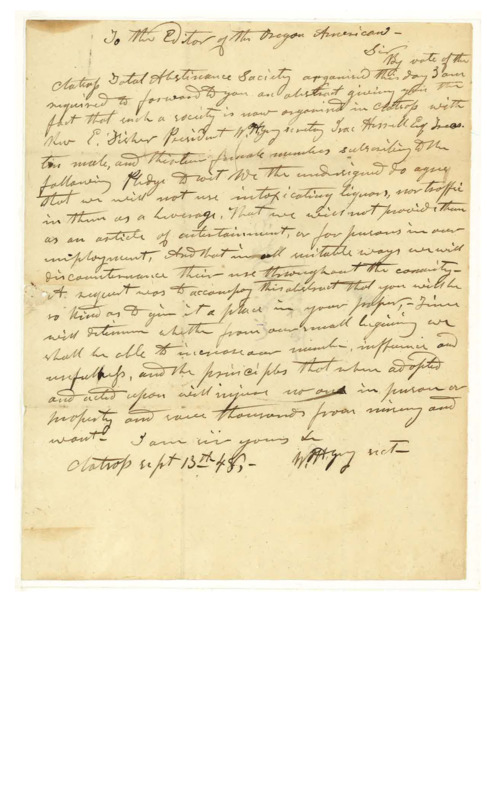 To the Editor of the Oregon American -
Sir By vote of the
Clatsop Total Abstinance Society organised this day I am
required to forward to you an abstract giving you the
fact that such a society is now organised in Clatsop with
Rev E. Fisher President W H Gray secretary Esq
male, and private members subscribing to the
following Pledge to wit We the undersigned do agree
that we will not use intoxicating liquors, nor traffic
in them as a beverage, That we will not provide them
as an article of entertainment, or for persons in our
employment, And that in all suitable ways we will
discountenance their use throughout the comunity -
A request was to accompany this abstract that you will be
so kind as to give it a place in your paper, - Time
will determine whether from our small begining we
shall be able to increase our number, influence and
usefulness, and the principles that when adopted
and acted upon will injure no one in person or
property and save thousands from misery and
want - I am sir yours &c
Clatsop sept 13th 48, - W H Gray sect -